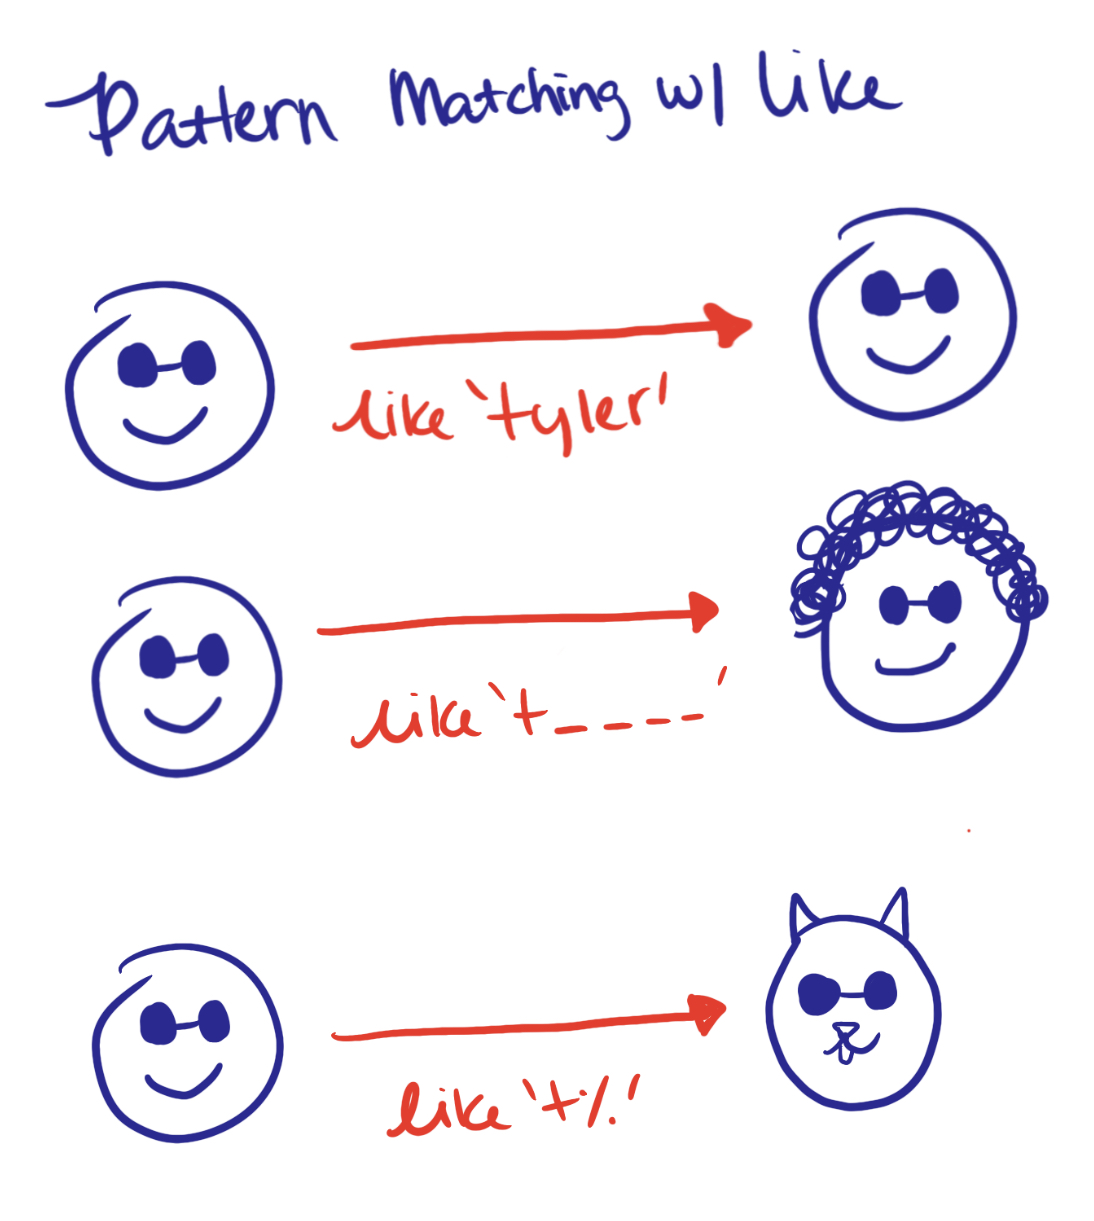 Pattern Matching w/ Like
like 'tyler'
like 't_ _ _ _'
like 't%'